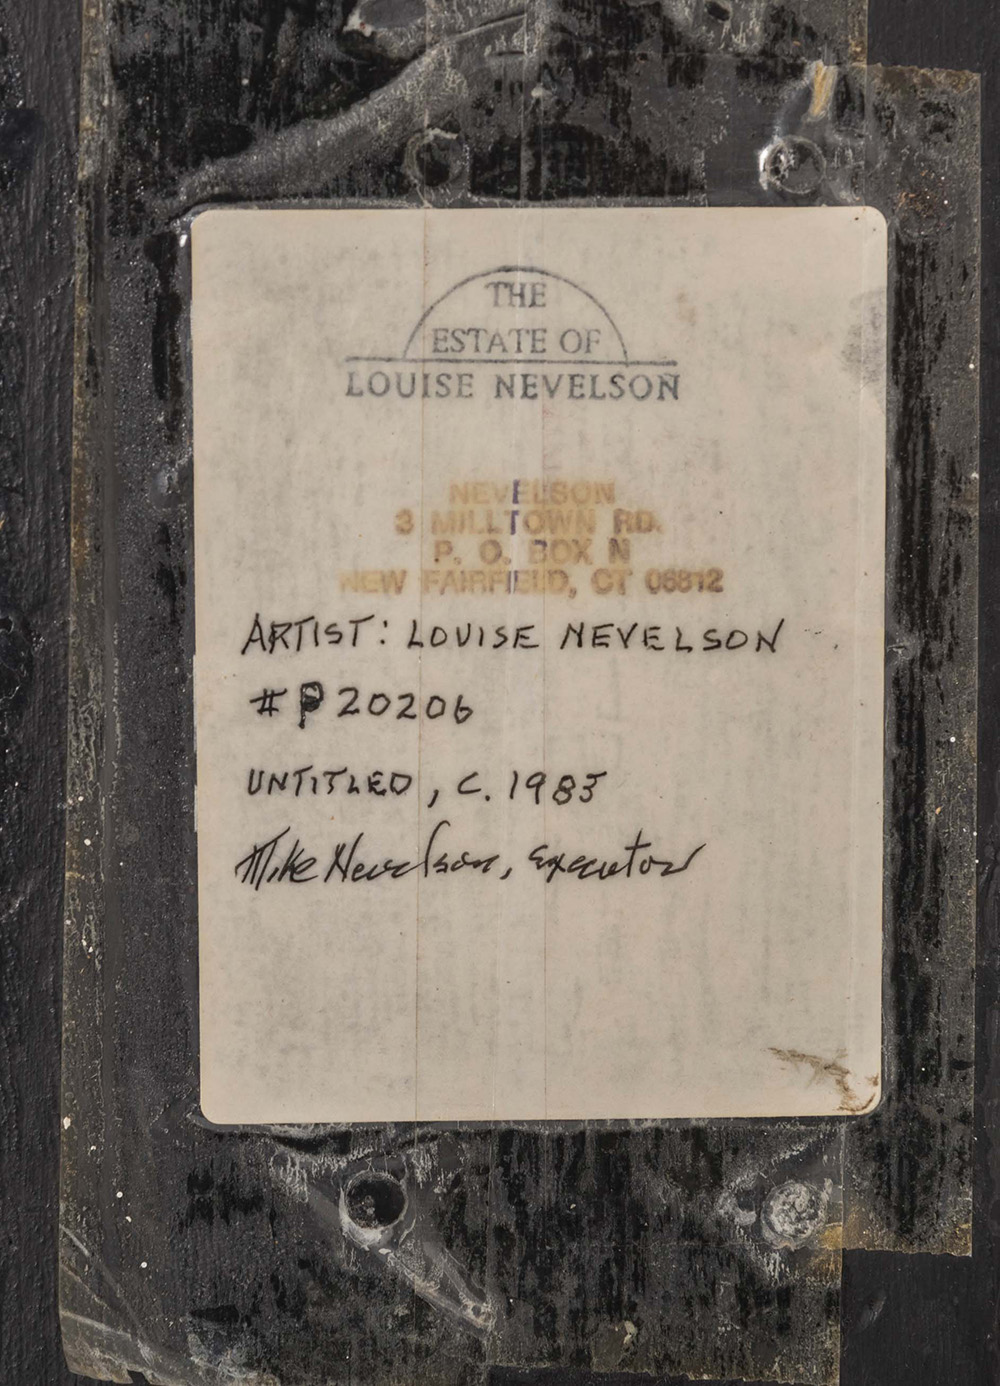 THE
ESTATE OF
LOUISE NEVELSON
NEVELSON
3 MILLTOWN RD.
P. O. BOX N
NEW FAIRFIELD, CT 06812
ARTIST: LOUISE NEVELSON
#P20206
UNTITLED, C. 1985
Mike Nevelson, Executor